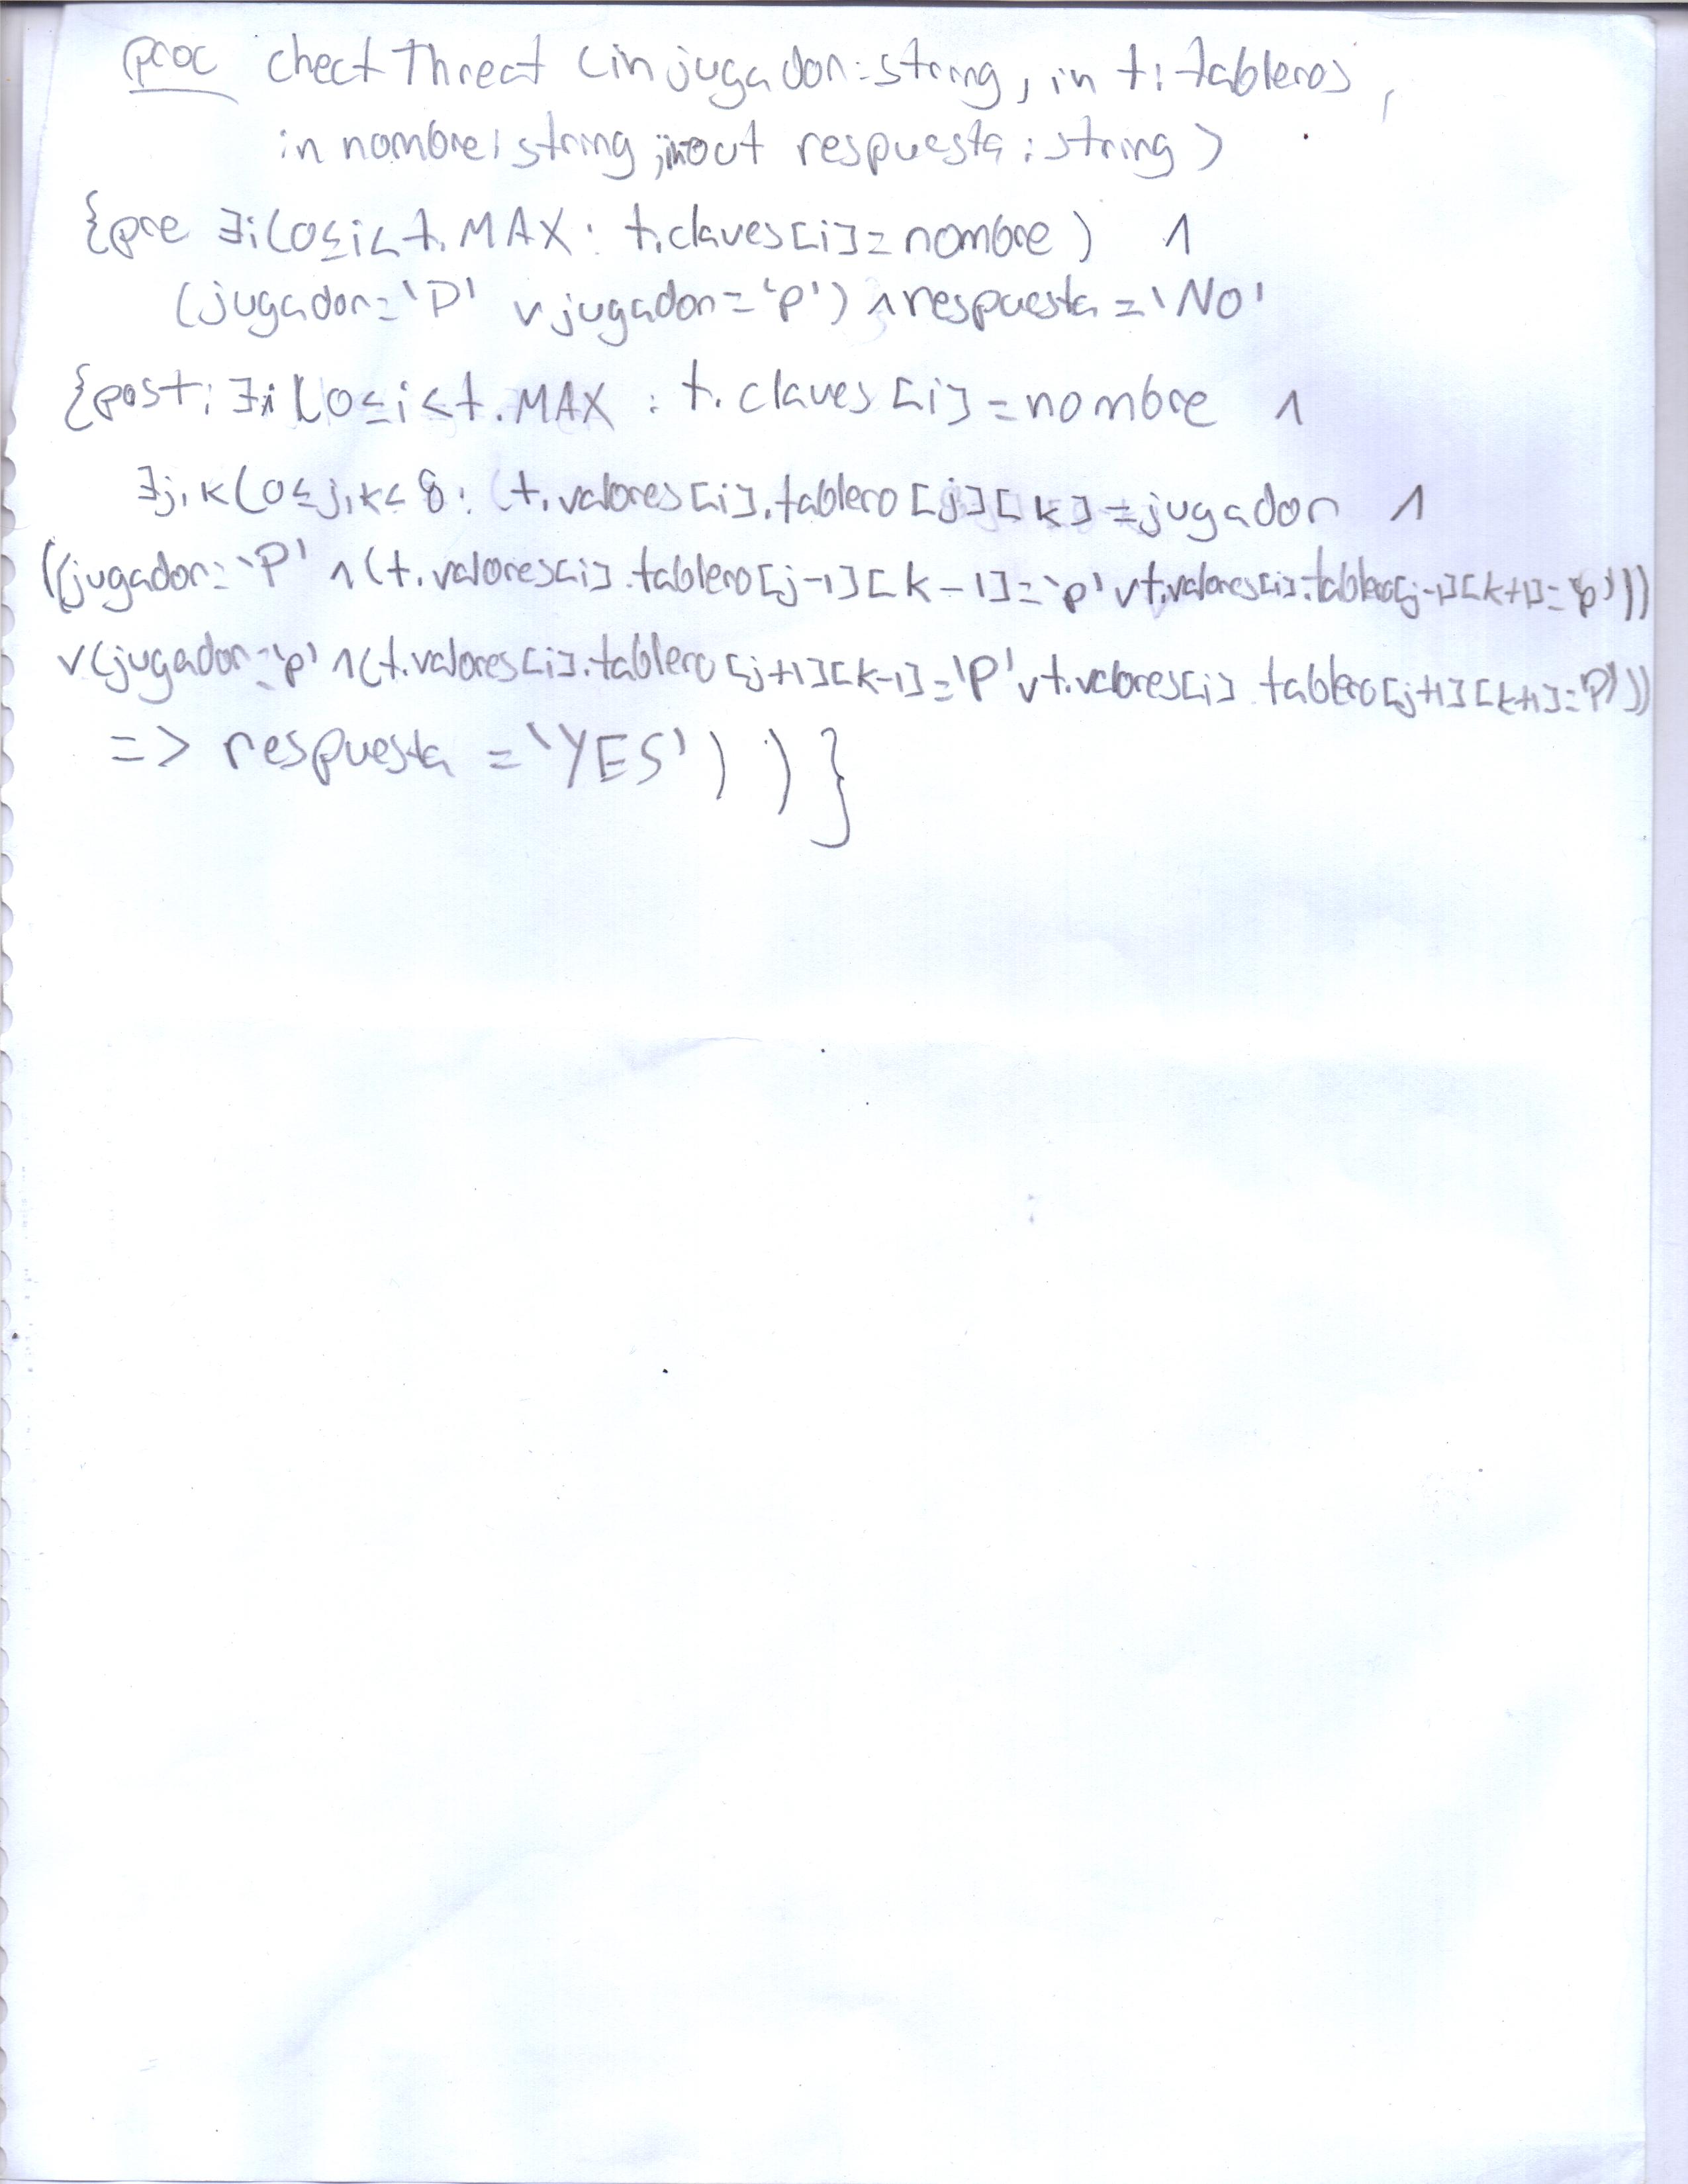 proc chectThreat (in jugador:string, in t: tableros,
in nombre: string; inout respuesta: string)
{pre ∃i(0≤i<t.MAX: t.claves[i]=nombre) ∧
(jugador='P' ∨ jugador='p') ∧ respuesta='No'
{post: ∃i(0≤i<t.MAX : t.claves[i]=nombre ∧
∃j,k(0≤j,k<8: (t.valores[i].tablero[j][k]=jugador ∧
((jugador='P' ∧(t.valores[i].tablero[j-1][k-1]='p' ∨ t.valores[i].tablero[j-1][k+1]='p')))
∨(jugador='p' ∧(t.valores[i].tablero[j+1][k-1]='P' ∨ t.valores[i].tablero[j+1][k+1]='P')))
=> respuesta ='YES') ) }